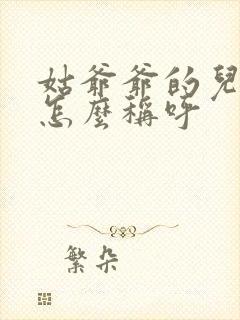 姑爺爺的兒
怎麼稱呼
繁朵